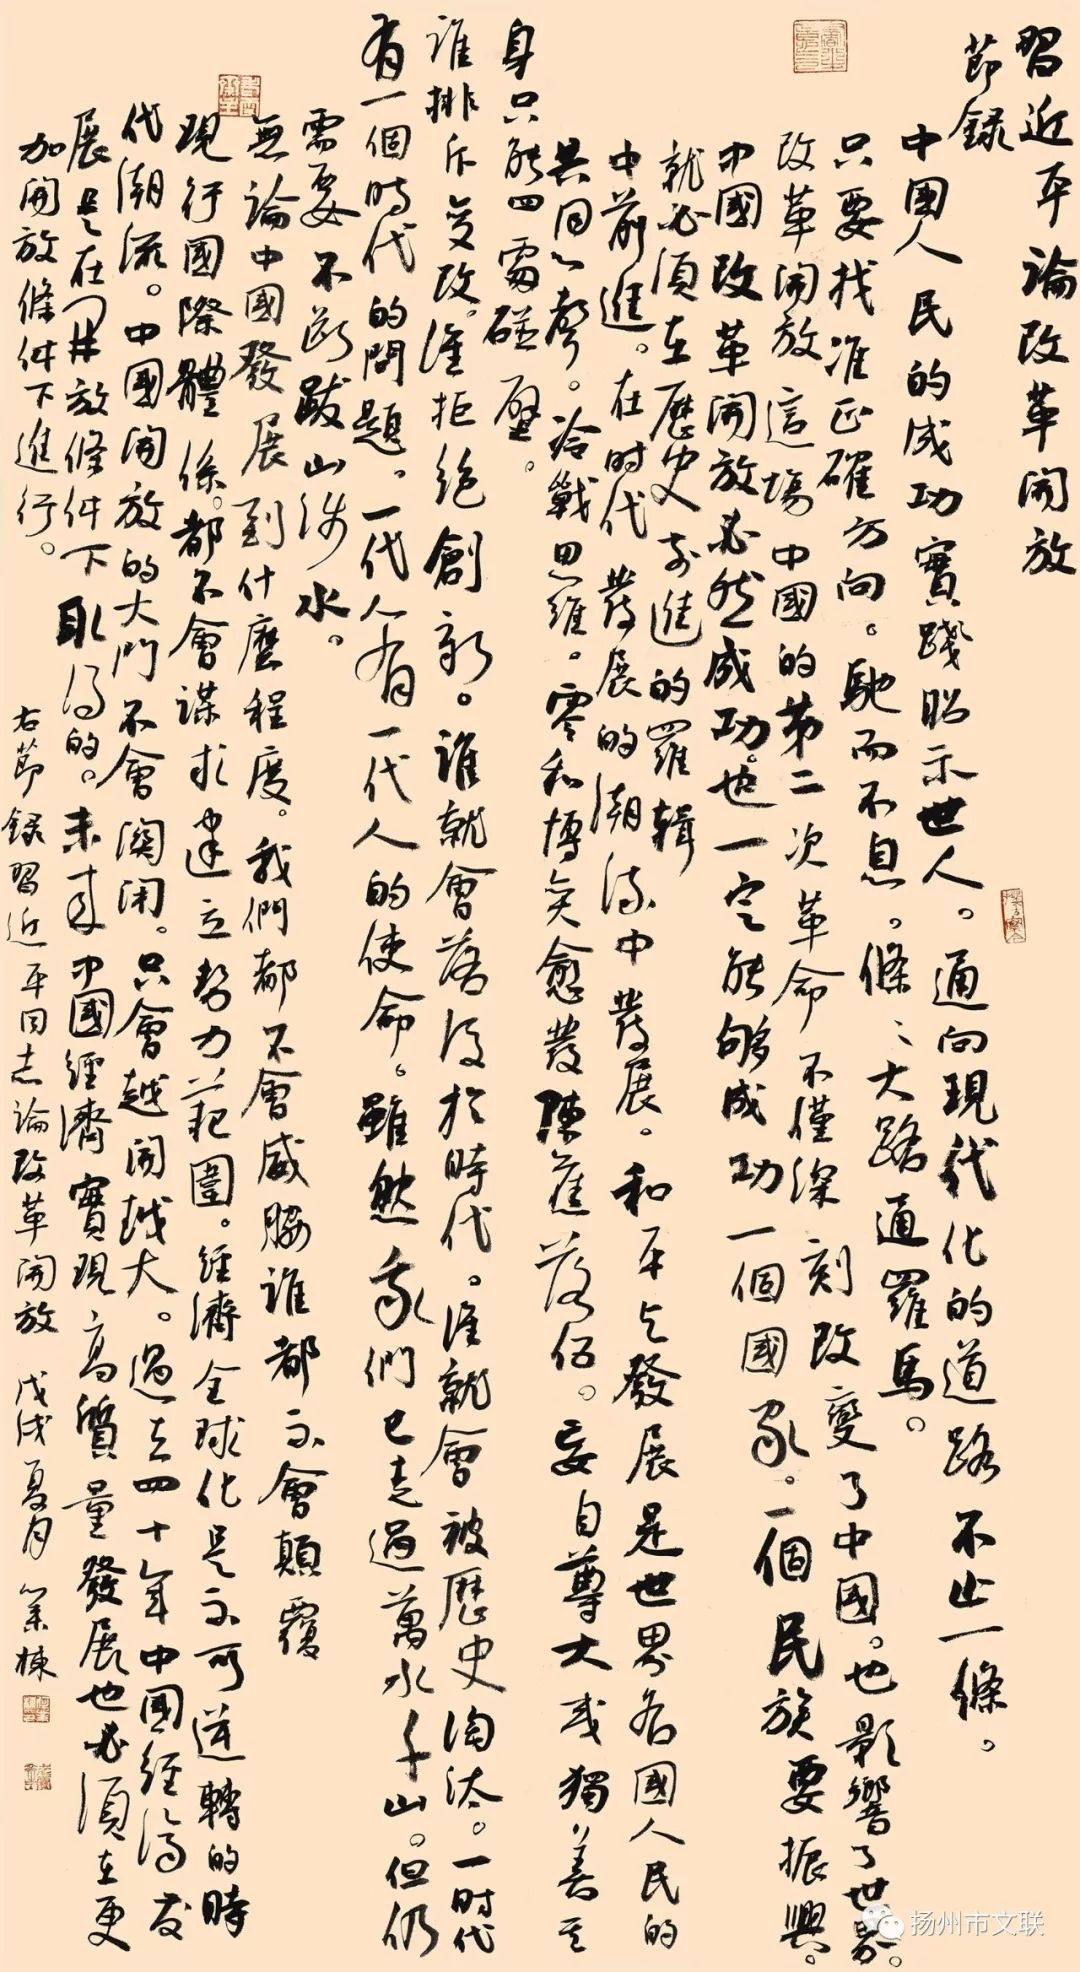 習近平論改革開放
節録
中國人民的成功實踐昭示世人。通向現代化的道路不止一條。
只要找准正確方向。馳而不息。條〻大路通羅馬。
改革開放這場中國的第二次革命不僅深刻改變了中國。也影響了世界。
中國改革開放必然成功。也一定能够成功一個國家。一個民族要振興。
就必須在歷史前進的羅輯
中前進。在时代發展的潮流中發展。和平與發展是世界各國人民的
共同心聲。冷戰思維。零和博弈愈發陳舊落伍。妄自尊大或獨善其
身只能四處碰壁。
誰排斥变改。誰拒絶創新。誰就會落後於時代。誰就會被歷史淘汰。一时代
有一個時代的問題。一代人有一代人的使命。雖然我們已走過萬水千山。但仍
需要不斷跋山涉水。
無論中國發展到什麽程度。我們都不會威脅誰都不會顛覆
現行國際體係。都不會謀求建立勢力範圍。經濟全球化是不可逆轉的時
代潮流。中國開放的大門不會關閉。只會越開越大。過去四十年中國經濟發
展是在開放條件下取得的。未來中國經濟實現高質量發展也必須在更
加開放條件下進行。
右節録習近平同志論改革開放 戊戌夏月
扬州市文联